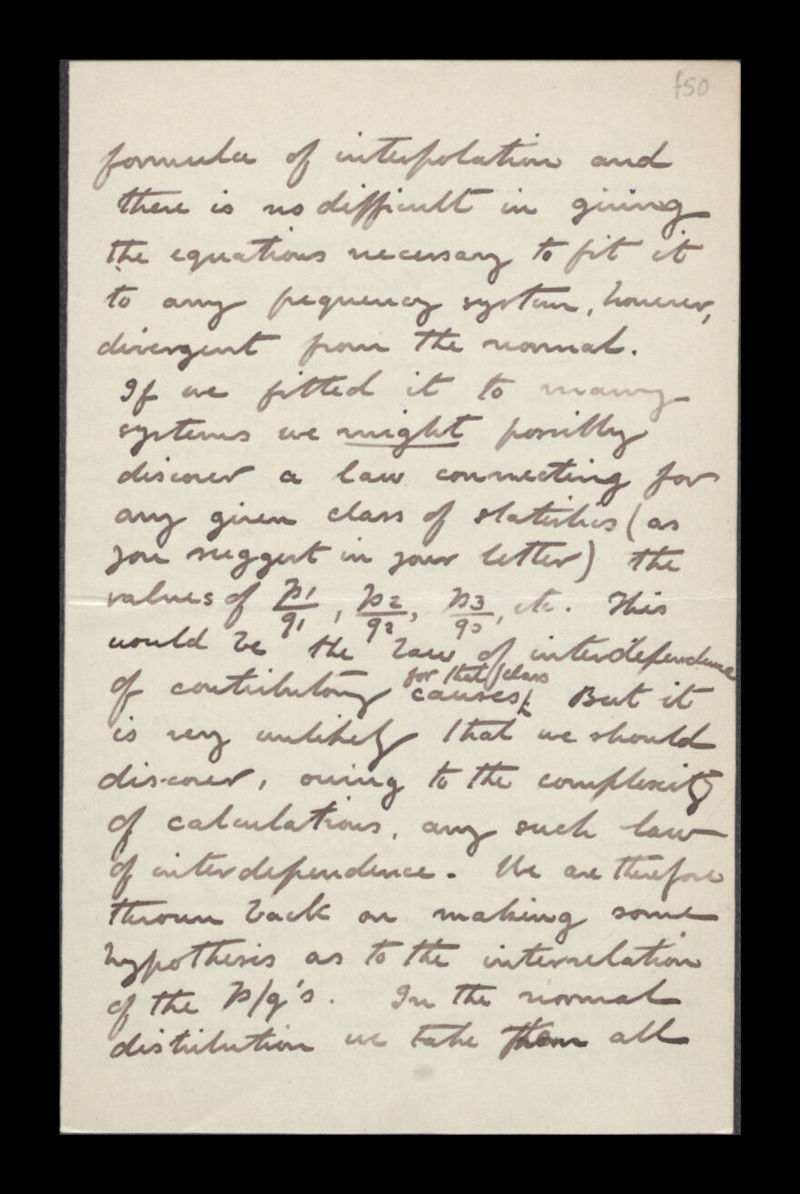 f50
formula of interpolation and
there is no difficult in giving
the equations necessary to fit it
to any frequency system, however,
divergent from the normal.
If we fitted it to many
systems we might possibly
discover a law connecting for
any given class of statistics (as
you suggest in your letter) the
values of p1/q1, p2/q2, p3/q3, etc. This
would be the law of interdependence
of contributory causes for that class. But it
is very unlikely that we should
discover, owing to the complexity
of calculations, any such law
of interdependence. We are therefore
thrown back on making some
hypothesis as to the interrelation
of the p/q's. In the normal
distribution we take them all